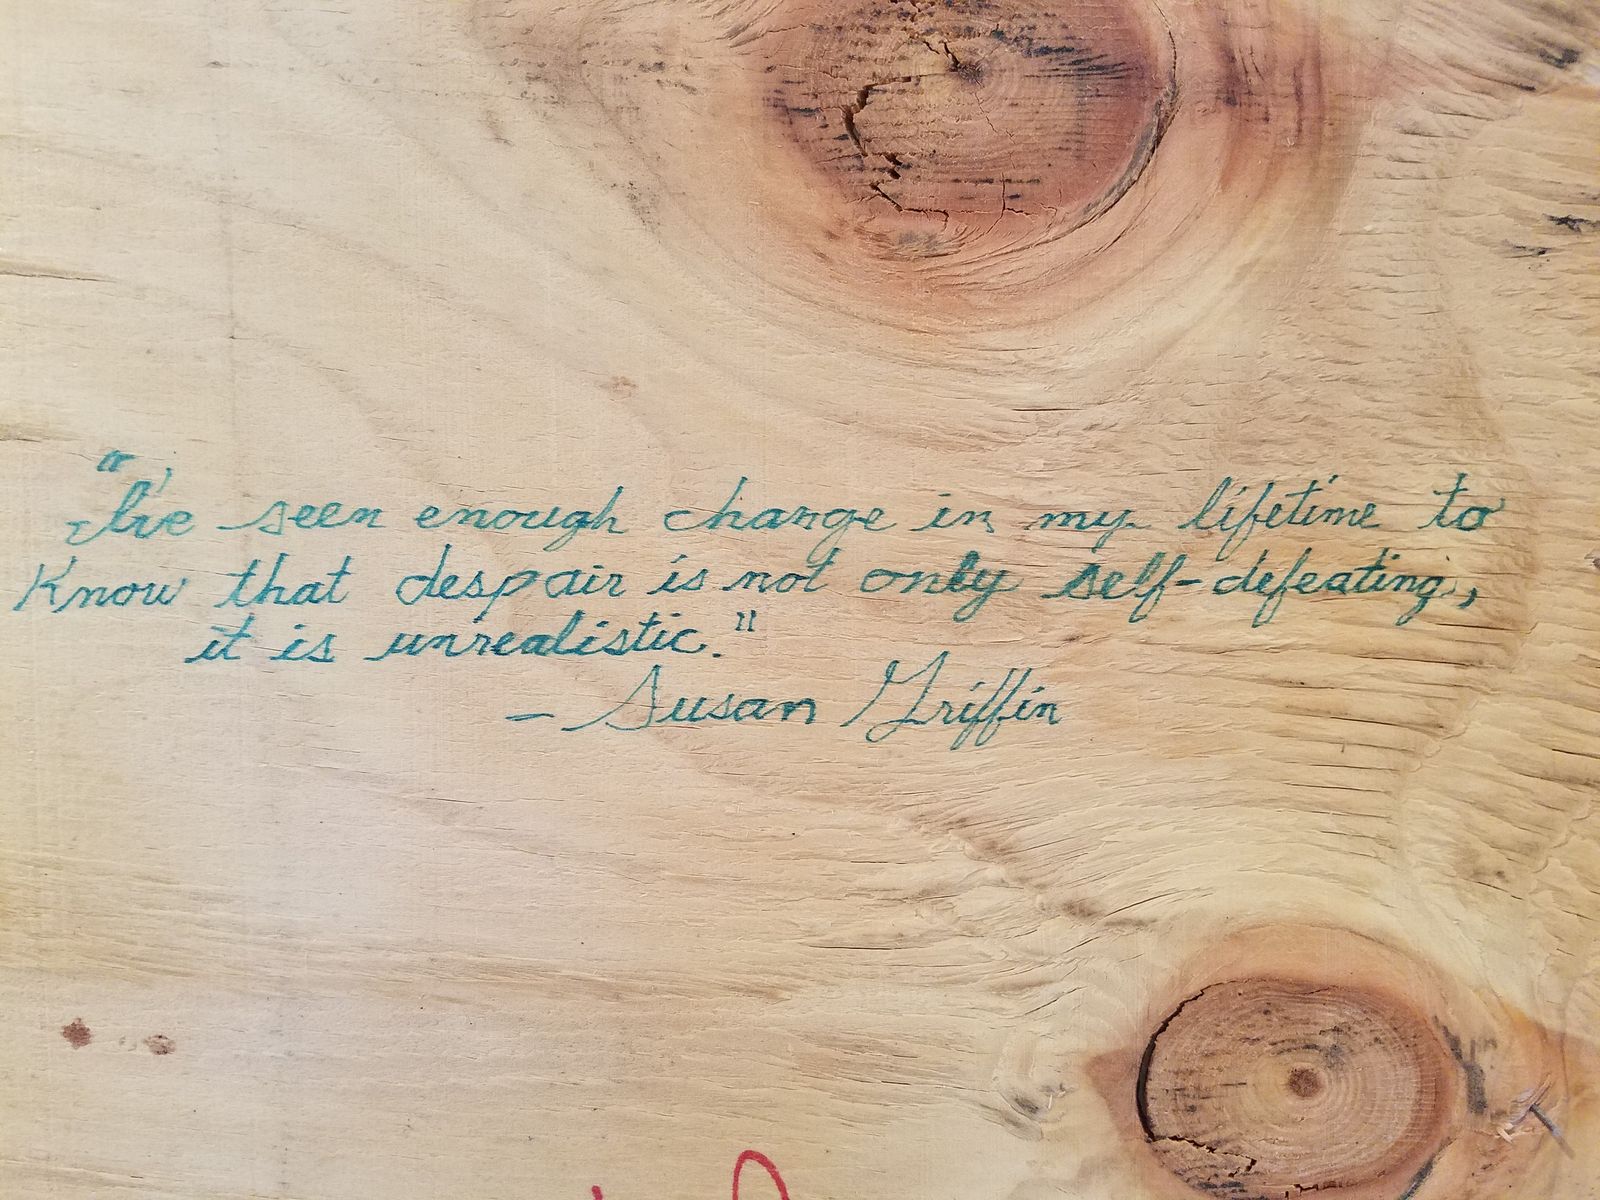 "I've seen enough change in my lifetime to
Know that despair is not only self-defeating,
it is unrealistic."
- Susan Griffin